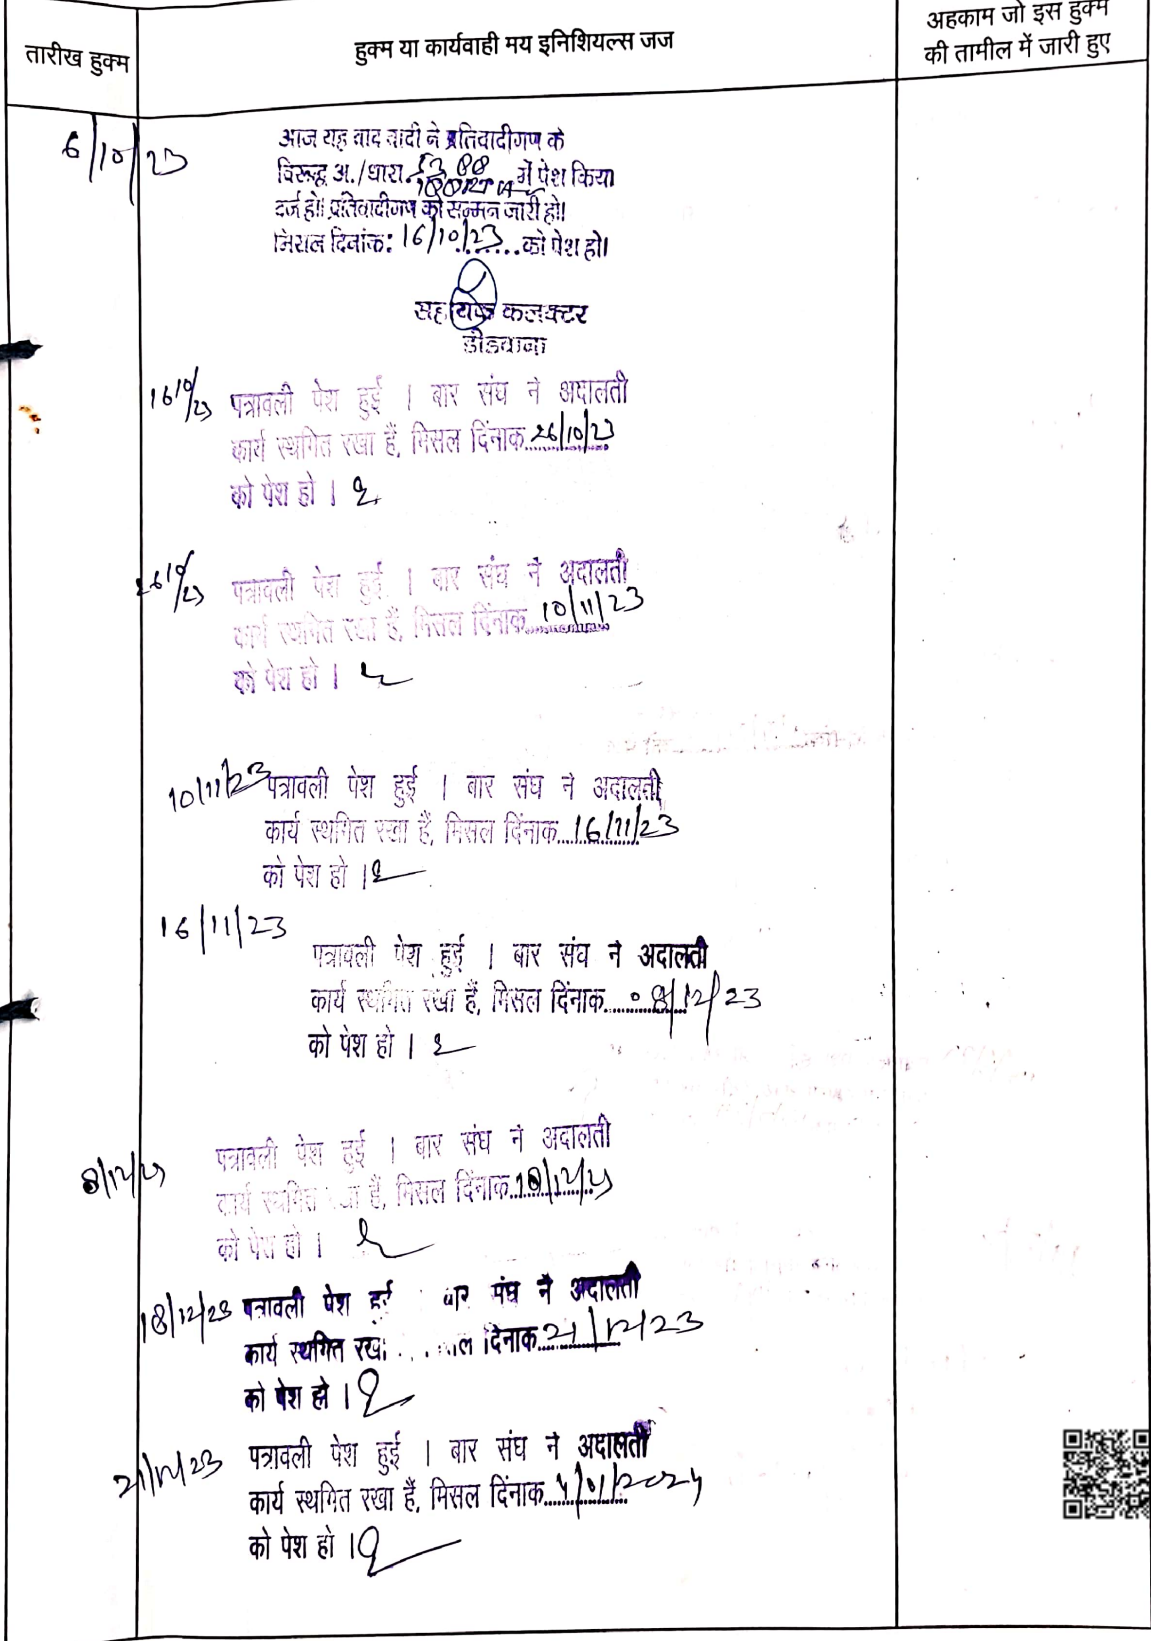 तारीख हुक्म
हुक्म या कार्यवाही मय इनिशियल्स जज
अहकाम जो इस हुक्म
की तामील में जारी हुए
6/10/23
आज यह वाद वादी ने प्रतिवादीगण के
विरूद्ध अ./धारा. 53 88 में पेश किया
दर्ज हो। प्रतिवादीगण को सम्मन जारी हो।
मिसल दिनांक: 16/10/23 को पेश हो।
सहायक कलक्टर
डीडवाना
16/10/23 पत्रावली पेश हुई । बार संघ ने अदालती
कार्य स्थगित रखा हैं, मिसल दिंनाक 26/10/23
को पेश हो ।
26/10/23 पत्रावली पेश हुई । बार संघ ने अदालती
कार्य स्थगित रखा हैं, मिसल दिंनाक 10/11/23
को पेश हो ।
10/11/23 पत्रावली पेश हुई । बार संघ ने अदालती
कार्य स्थगित रखा हैं, मिसल दिंनाक 16/11/23
को पेश हो ।
16/11/23
पत्रावली पेश हुई । बार संघ ने अदालती
कार्य स्थगित रखा हैं, मिसल दिंनाक 08/12/23
को पेश हो ।
8/12/23
पत्रावली पेश हुई । बार संघ ने अदालती
कार्य स्थगित रखा हैं, मिसल दिंनाक 18/12/23
को पेश हो ।
18/12/23 पत्रावली पेश हुई बार संघ ने अदालती
कार्य स्थगित रखा दिंनाक 21/12/23
को पेश हो ।
21/12/23 पत्रावली पेश हुई । बार संघ ने अदालती
कार्य स्थगित रखा हैं, मिसल दिंनाक 4/01/2024
को पेश हो ।